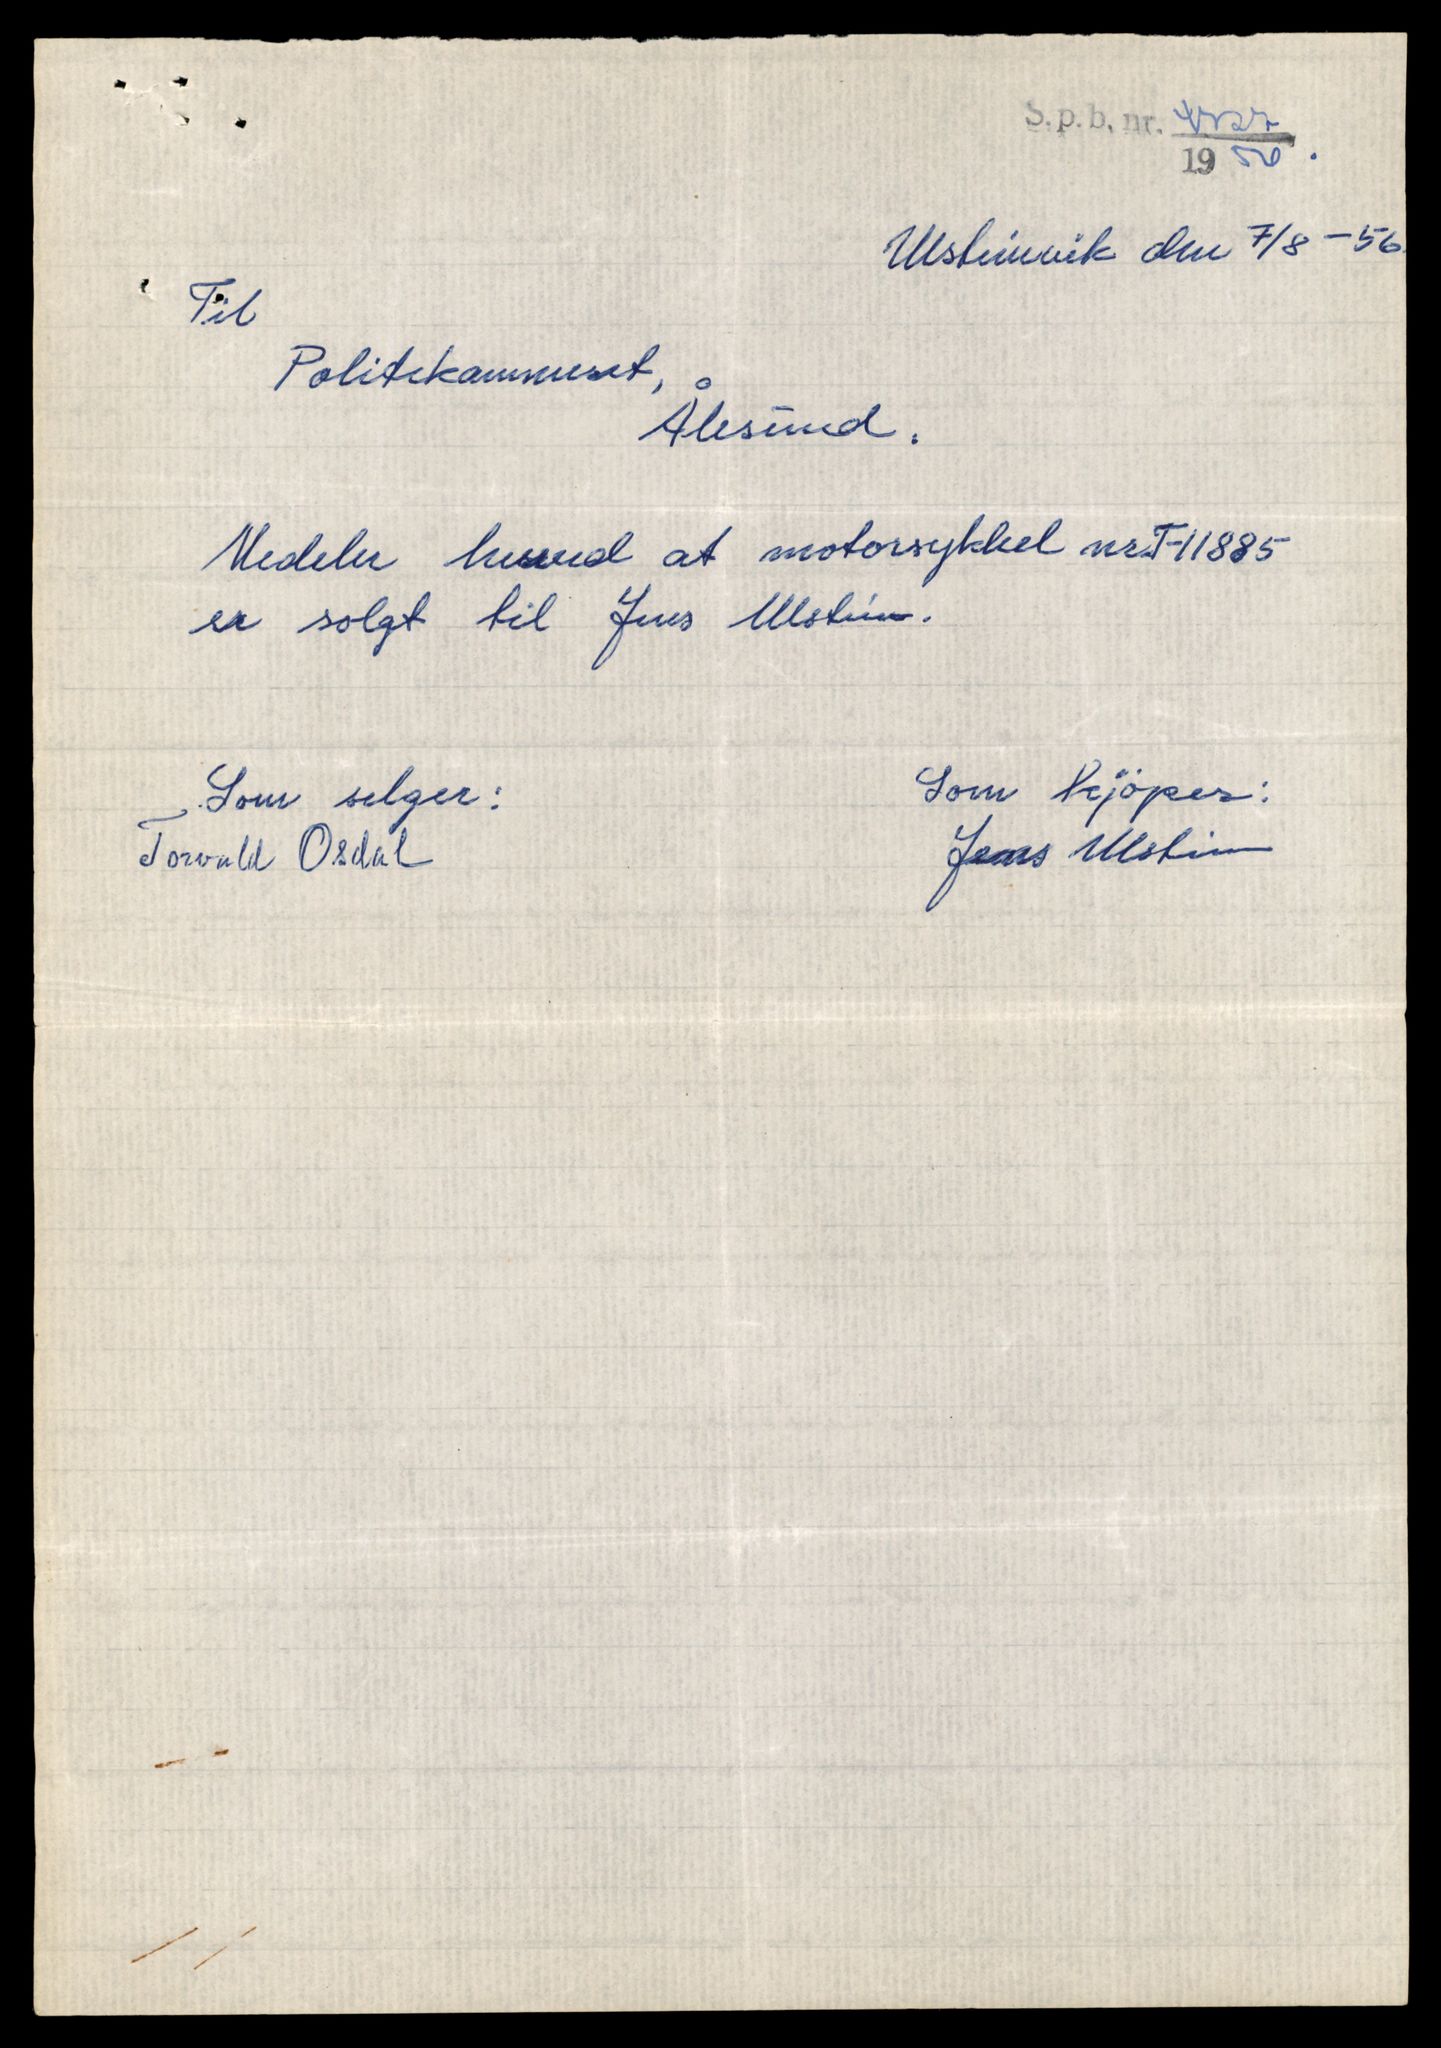 S.p.b. nr.
19 56.
Ulsteinvik den 7/8 - 56
Til
Politikammeret,
Ålesund.
Medeler herved at motorsykkel nr. T-11885
er solgt til Jens Ulstein.
Som selger: Som kjöper:
Torvald Osdal Jens Ulstein